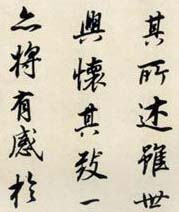 其所述雖世
與懷其致一
亦將有感於